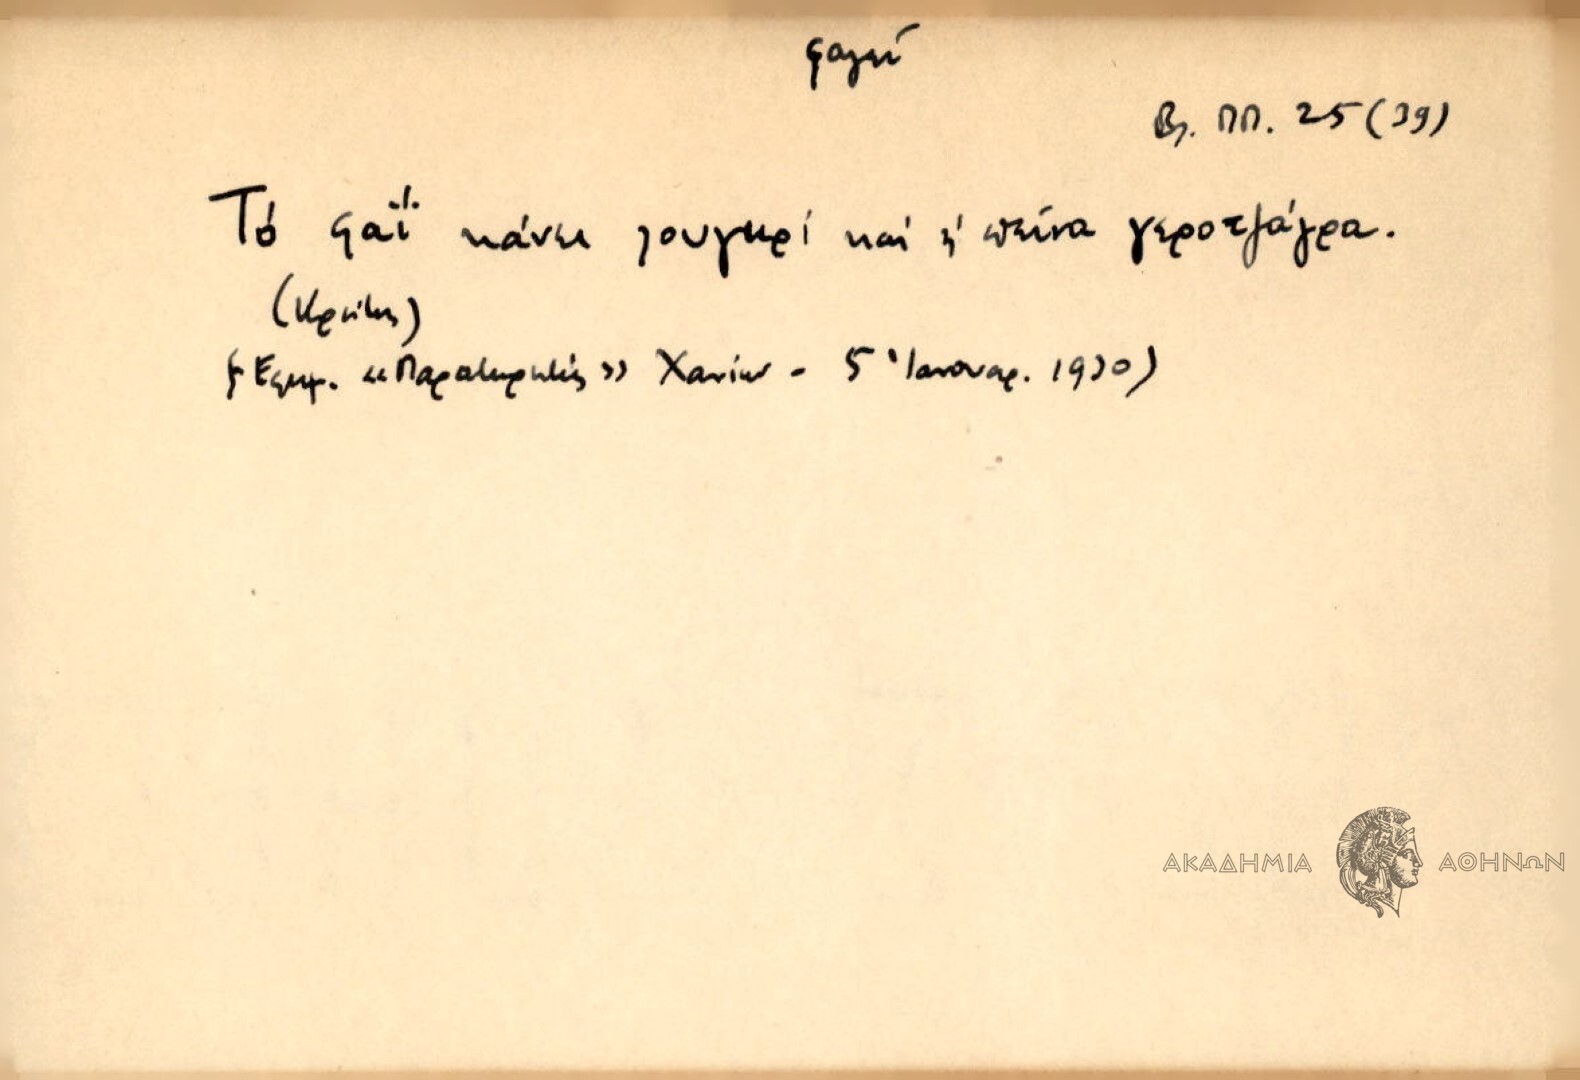 φαγεί
Βλ. ΠΠ. 25 (39)
Τό φαΐ κάνει λουγερί καί ἡ πείνα γεροτζάγρα.
(Κρήτης)
(Ἐφημ. «Παρατηρητής» Χανίων - 5 Ἰανουαρ. 1930)
ΑΚΑΔΗΜΙΑ ΑΘΗΝΩΝ